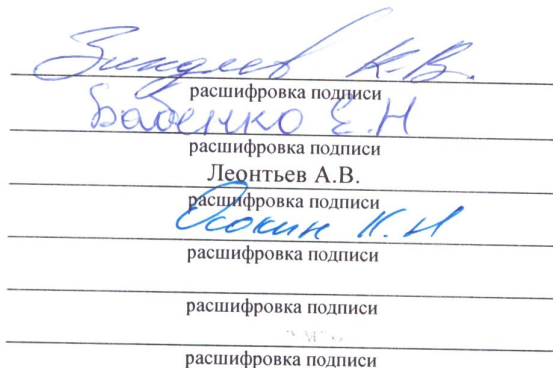 Зинделев К.В.
расшифровка подписи
Бабенчко Е.Н
расшифровка подписи
Леонтьев А.В.
расшифровка подписи
Осокин К.Н
расшифровка подписи
расшифровка подписи
расшифровка подписи